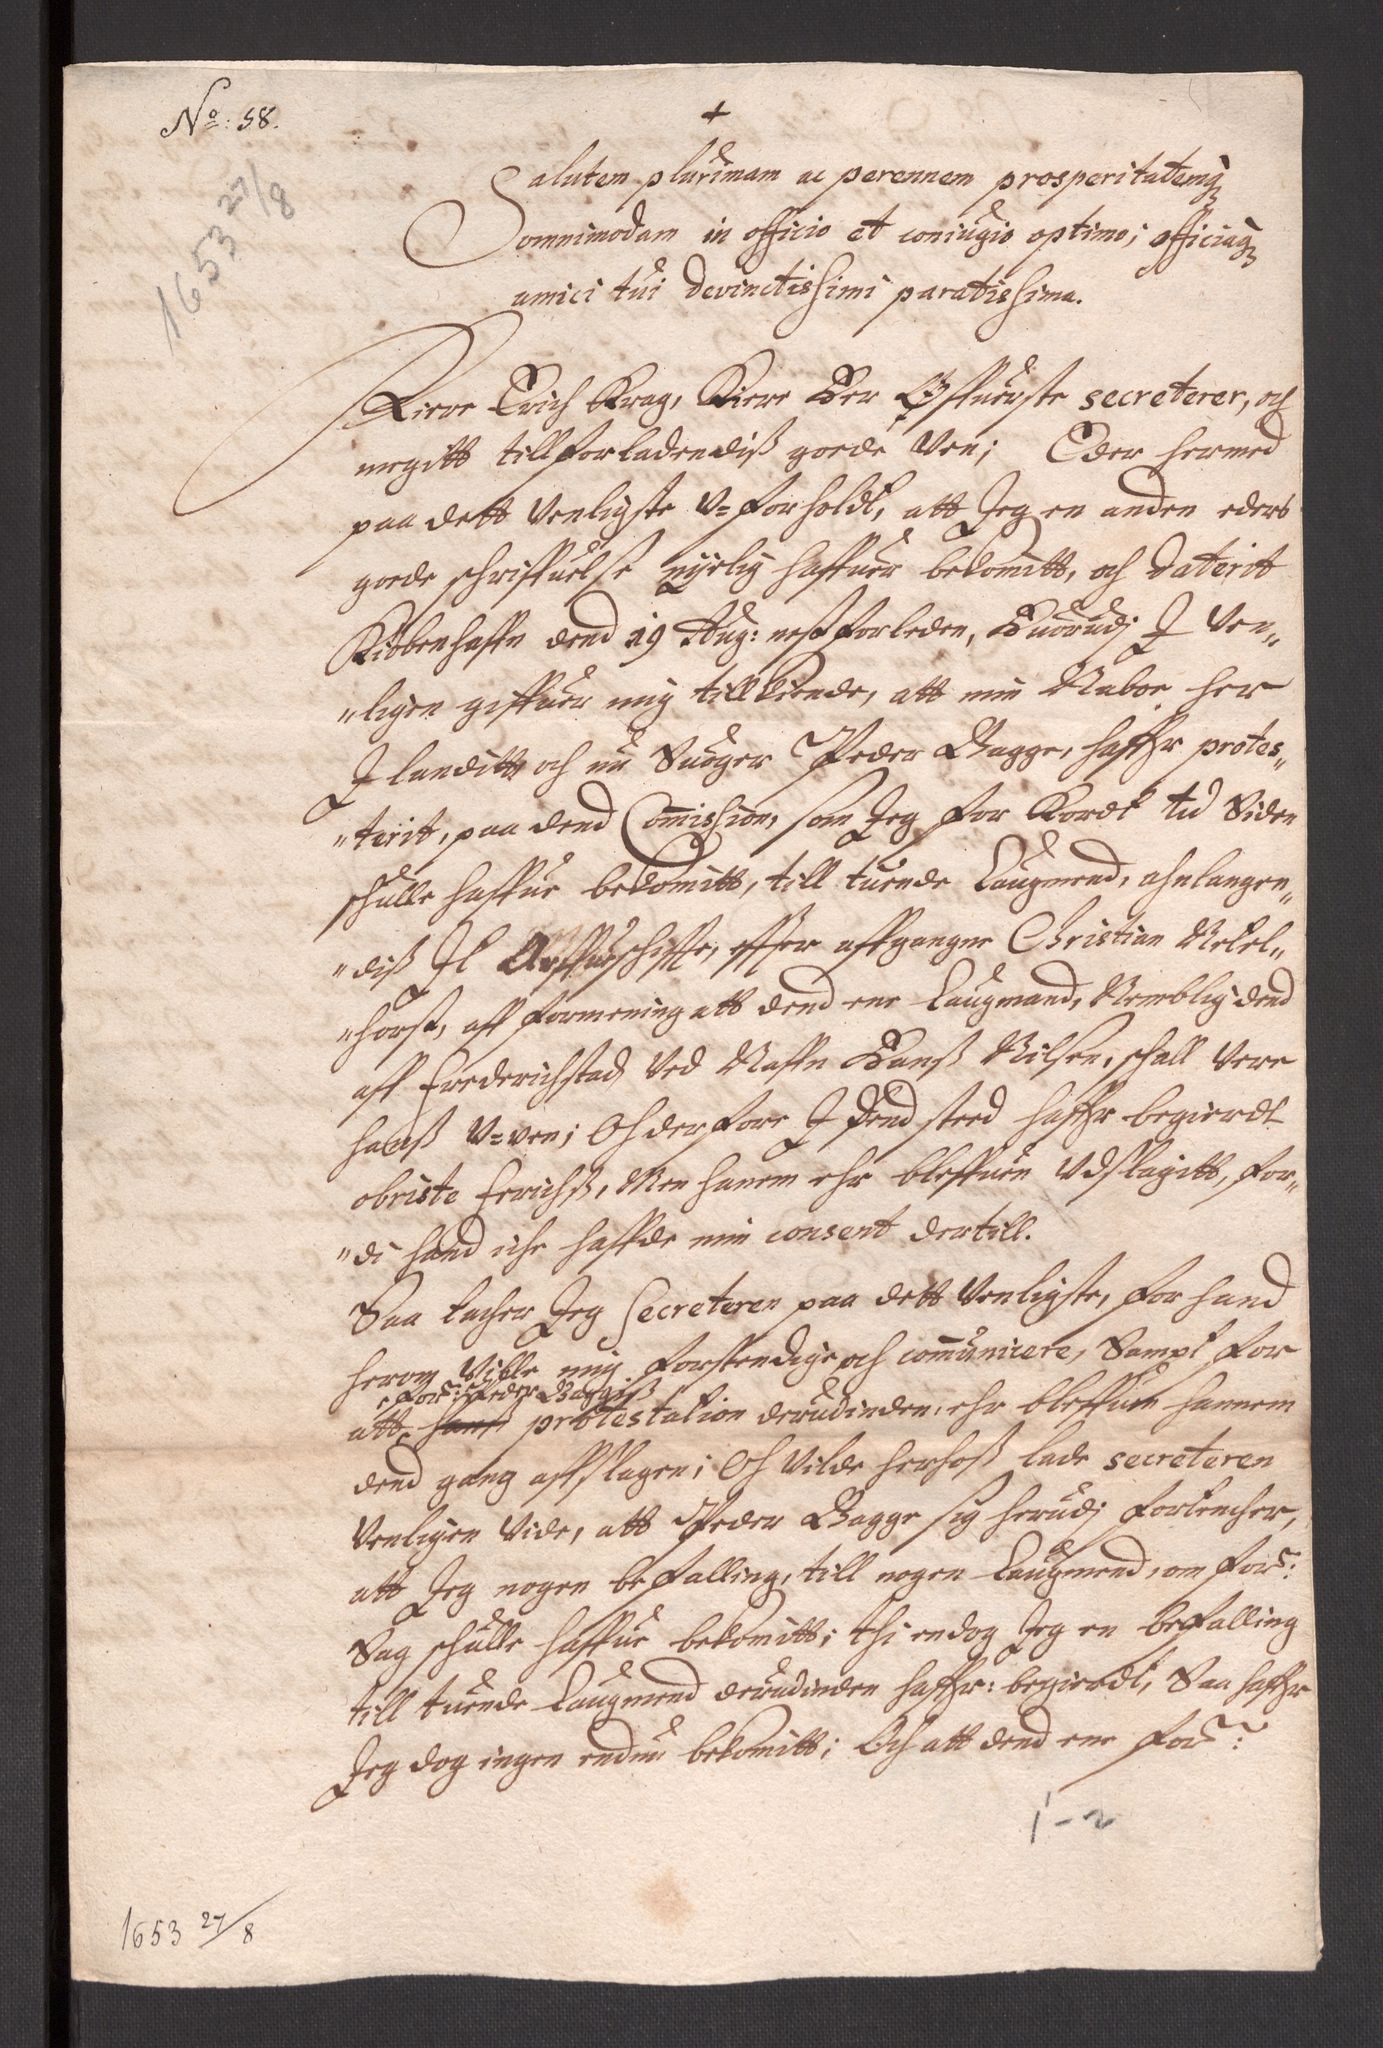 No: 58.
+
1653 27/8
Salutem plurimam ac perennem prosperitatemq;
omnimodam in officio et coniugio optimo; officiaq;
amici tui devinctissimi paratissima.
Kiere Erich Krag, Kiere Her Øffuerste secreterer, och
megitt tillforladendiß goede Ven; Eder hermed
paa dett Venligste V-forholdt, att Jeg en anden eders
goede schriffuelse nyelig haffuer bekomitt, och daterit
Kiøbenhaffn dend 19 Aug: nest forleden, Huorudj I Ven„
„ligen giffuer mig tillkiende, att min Naboe her
I landitt och nu Suoger Peder Bagge, haffr protes„
„terit, paa dend Commission, som Jeg for kordt tid Siden
schulle haffue bekomitt, till tuende Laugmend, ahnlangen„
„diß Jt Arffueschiffte, effter affgangne Christian Mekel„
„horst, aff formening att dend ene Laugmand, Nemblig dend
aff Frederichstad ved Naffn Hanß Nilsen, schall Vere
hanß V-ven; Och derfore I dend sted haffr begierdt
obriste Frichß, Men hanem ehr bleffuen Vdslagitt, for„
„di hand iche haffde min consent dertill.
Saa tacher Jeg Secreteren paa dett Venligste, for hand
herom Vilde mig forstendige och communicere, Sampt for
Forne: Peder Baggiß
att hanß protestation derudinden, ehr bleffuen hannem
dend gang affslagen; Och Vilde herhoß lade secreteren
Venligen Vide, att Peder Bagge sig herudj fortencher,
att Jeg nogen befalling, till nogen Laugmend, om forne:
Sag schulle haffue bekomitt; thi endog Jeg en befalling
till tuende Laugmend derudinden haffr: begierdt, Saa haffr
Jeg dog ingen endnu bekomitt; Och att dend ene forne:
1-2
1653 27/8